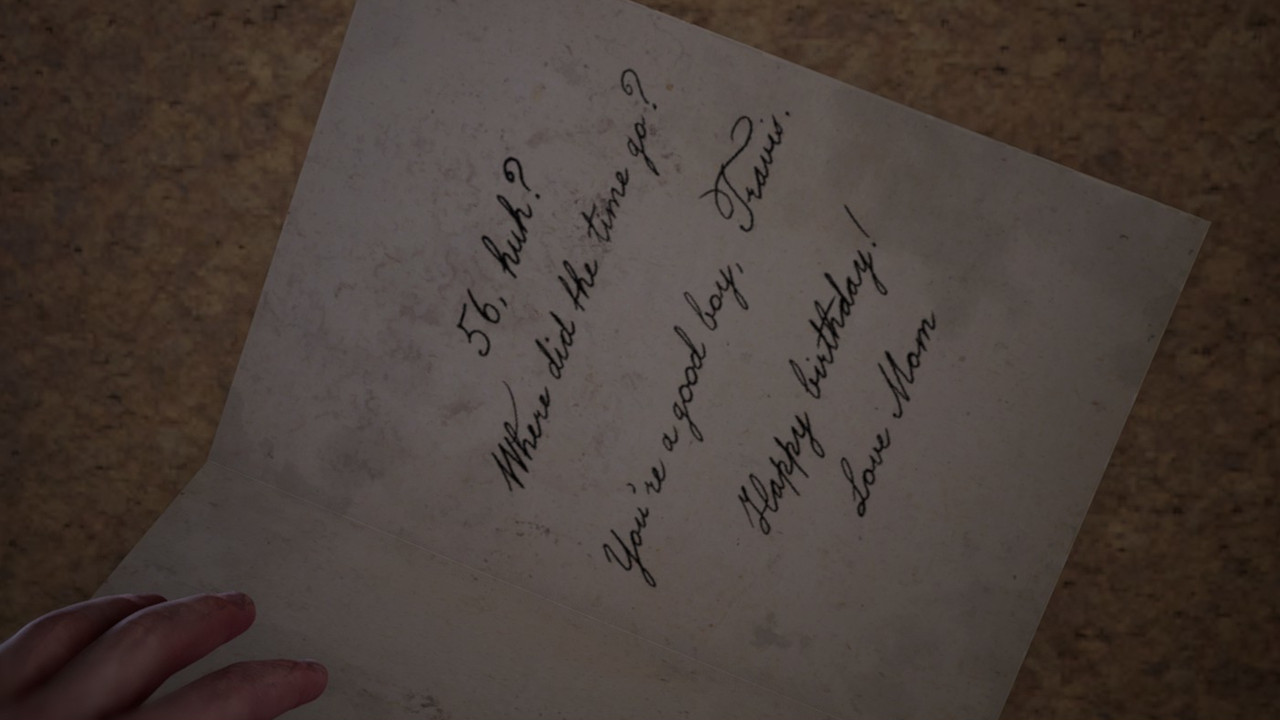 56, huh?
Where did the time go?
You're a good boy, Travis.
Happy birthday!
Love Mom